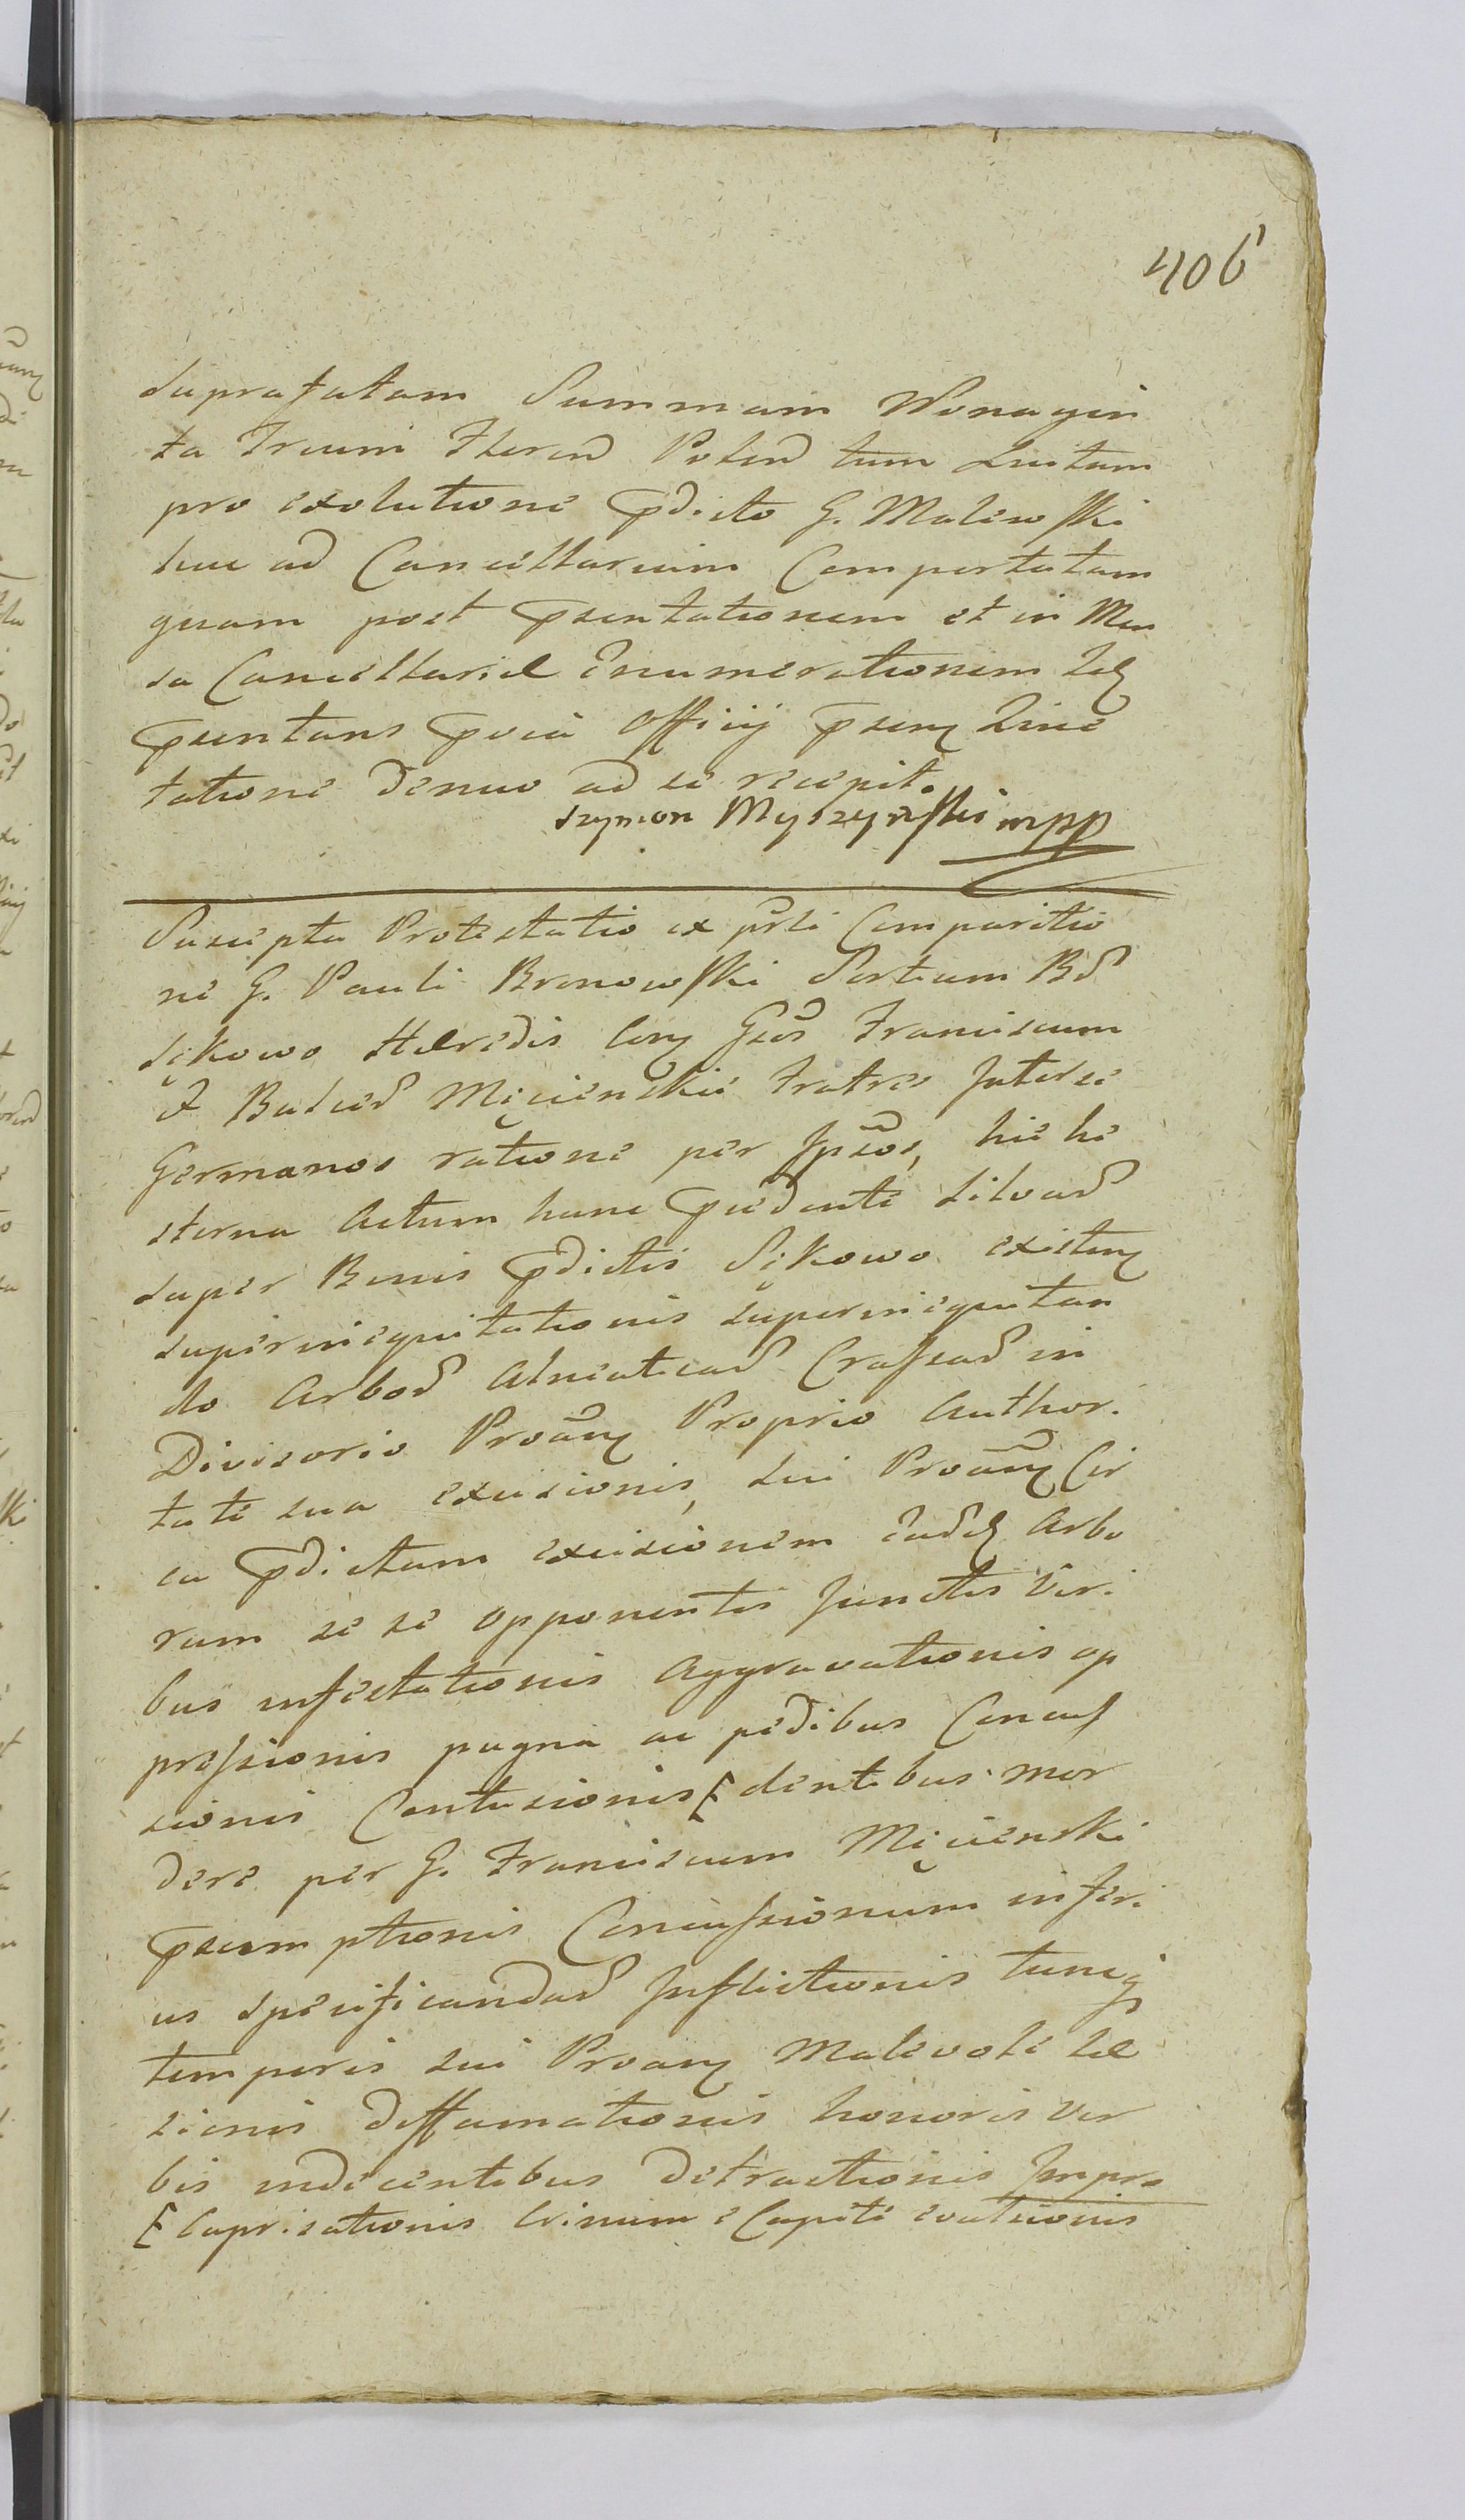 406
suprafatam Summam Nonagin
ta Trium Floren Polon tum Luitum
pro exolutione pdicto G. Malewski
huc ad Cancellariam Comportatam
quam post psentationem et in Men
sa Cancellariae Enumerationem Idq
psentans pvia Officij psenq
tatione denuo ad se recepit.
Szymon Myszyński mpp
Suscepta Protestatio ex psli Comparitio
ne G. Pauli Bronowski Sortium Bs
Sękowo Haeredis Conq Gsos Franciscum
& Balced Mięcienskie Fratres Inter se
Germanos ratione per Ipsos, hic he
sterna Actum hunc pcedente Silvas
super Bonis pdictis Sękowo existenq
superinequitationis superinequitan
do Arbos Alneaticas Crassas in
Divisorio Proanq Proprio Authori
tate sua excisionis, sui Proanq Cir
ca pdictam excisionem eadq Arbo
rum se se opponentis Junctis Viri
bus infestationis Aggravationis op
pressionis pugna ac pedibus Concus
sionis Contusionis [ dentibus mor
dere per G. Franciscum Mięcienski
psumptionis Concussionum inferi
us specificandas Inflictionis tunqz
temporis sui Proanq Malevole Lae
sionis diffamationis honoris ver
bis indecentibus detractionis Impro
[ Caprisationis Crinium e Capite evatuionis